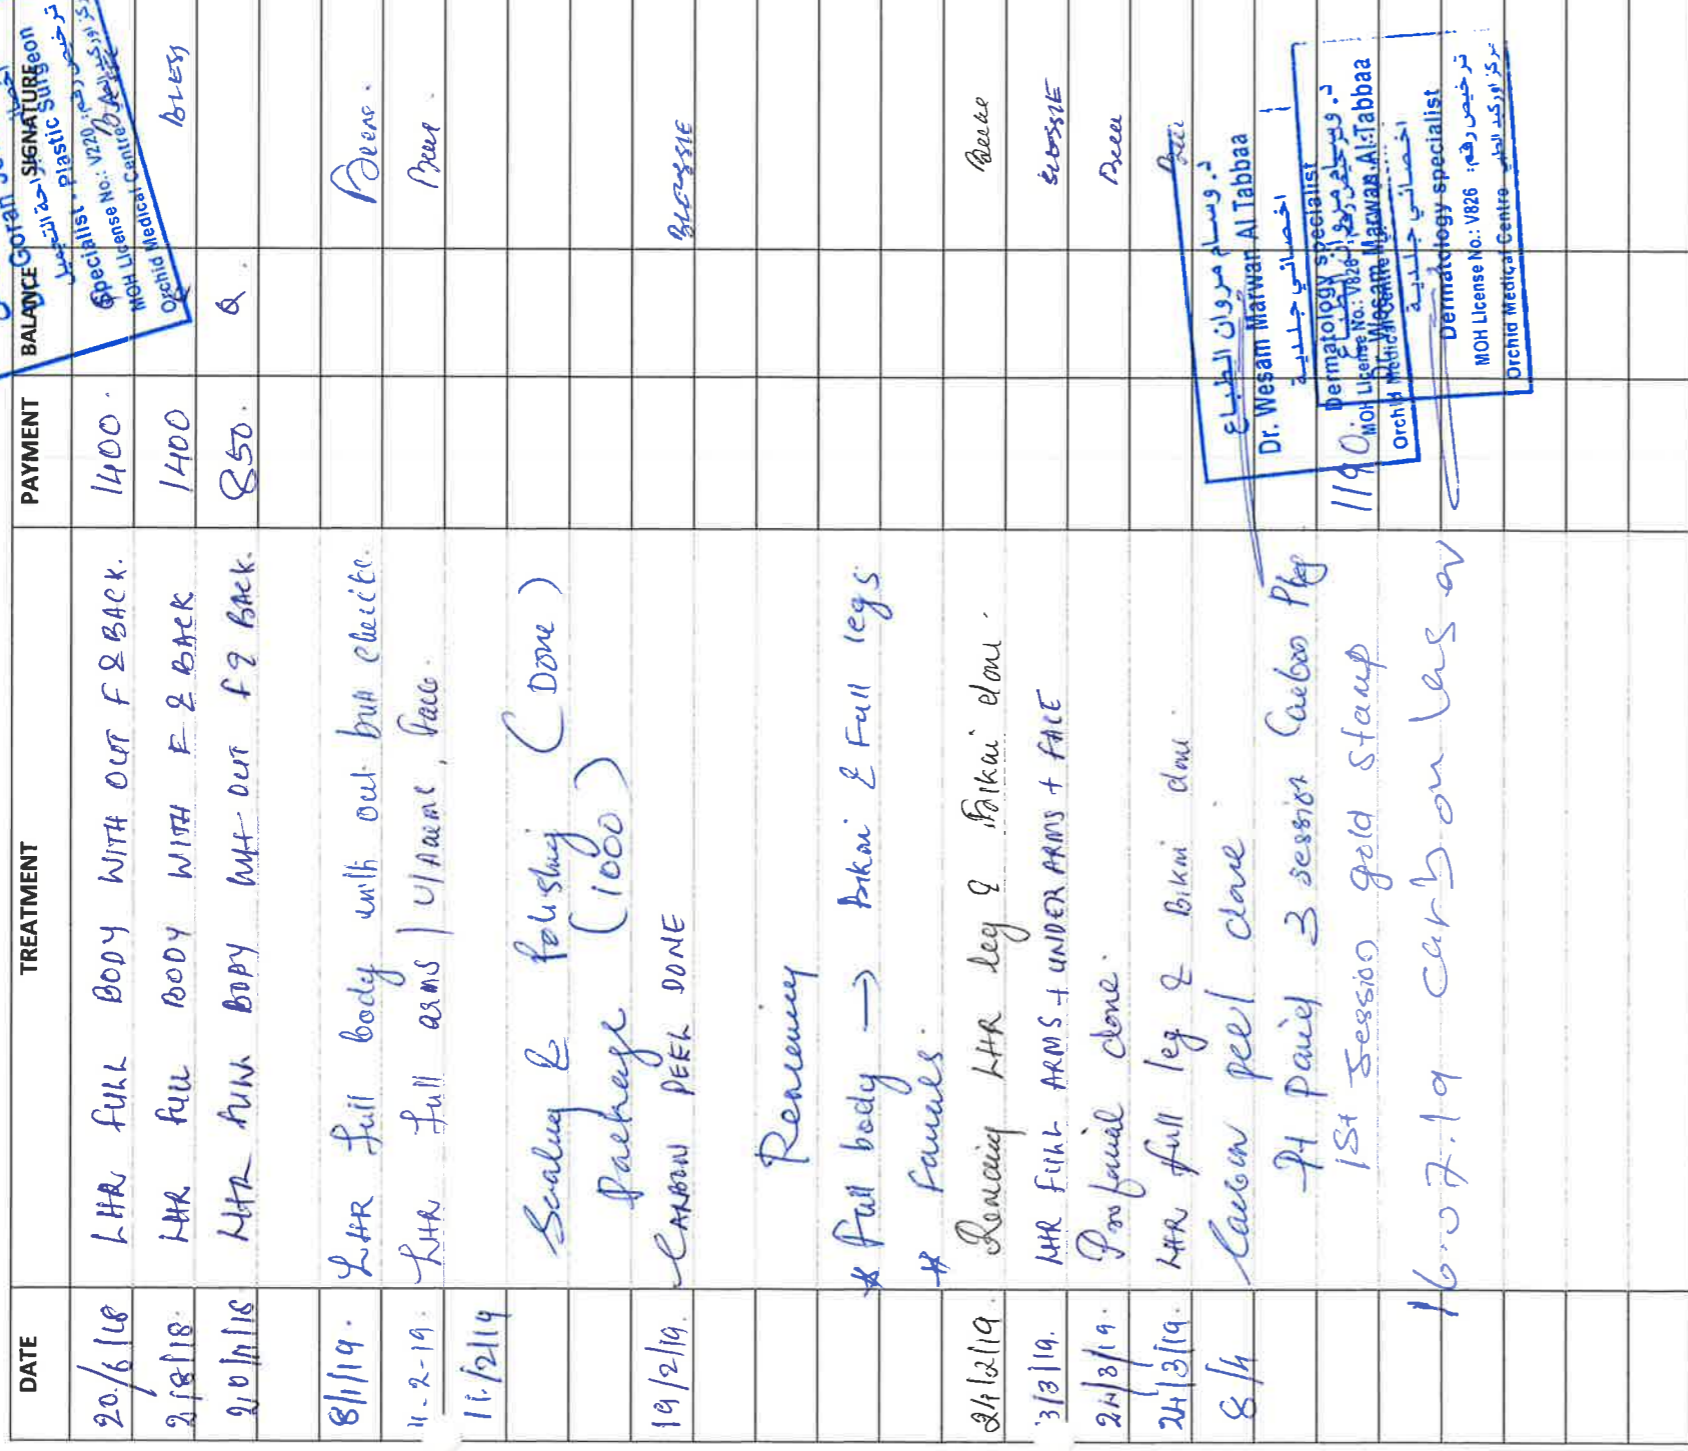 DATE TREATMENT PAYMENT BALANCE SIGNATURE
20/6/18 LHR FULL BODY WITH OUT F & BACK. 1400.
2/8/18. LHR FULL BODY WITH F & BACK 1400 BLESS
20/11/18 LHR FULL BODY WITH OUT F & BACK. 850.
8/1/19. LHR full body with out butt
11-2-19. LHR full arms / U/Arms, face.
11/2/19 Scaling & Polishing (Done)
Package (1000)
19/2/19. CARBON PEEL DONE BLESSIE
Remaining
* Full body → Bikai & Full legs
*
24/2/19. Remaining LHR leg & Bikai done.
3/3/19. LHR FULL ARMS + UNDER ARMS + FACE BLESSIE
24/3/19. Pro facial done.
24/3/19. LHR full leg & Bikai done.
8/4 Carbon peel done
Pt Paid 3 session Carbon 1190.
1st Session gold stamp
16.07.19 carbon
Goran
اخصائي جراحة التجميل
Specialist - Plastic Surgeon
ترخيص رقم: V220
MOH License No.: V220
Orchid Medical Centre
د. وسام مروان الطباع
Dr. Wesam Marwan Al Tabbaa
اخصائي جلدية
Dermatology specialist
MOH License No.: V826
Orchid Medical Centre
Dr. Wesam Marwan Al Tabbaa
اخصائي جلدية
Dermatology specialist
ترخيص رقم: V826
MOH License No.: V826
Orchid Medical Centre مركز اوركيد الطبي